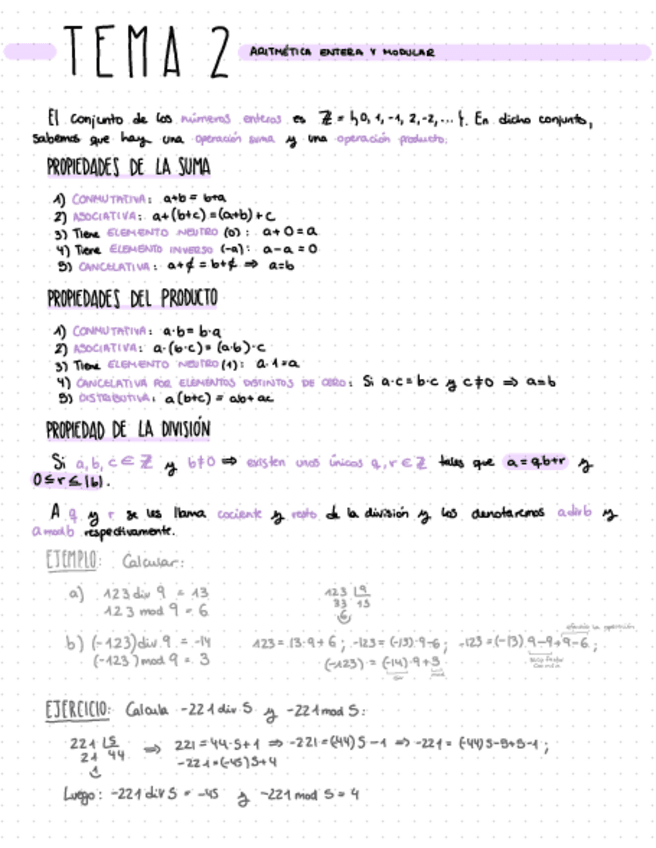 TEMA 2 ARITMÉTICA ENTERA Y MODULAR
El conjunto de los números enteros es ℤ = {0, 1, -1, 2, -2, ... }. En dicho conjunto,
sabemos que hay una operación suma y una operación producto:
PROPIEDADES DE LA SUMA
1) CONMUTATIVA: a+b = b+a
2) ASOCIATIVA: a+(b+c) = (a+b)+c
3) Tiene ELEMENTO NEUTRO (0): a+0=a
4) Tiene ELEMENTO INVERSO (-a): a-a = 0
5) CANCELATIVA: a+c = b+c ⇒ a=b
PROPIEDADES DEL PRODUCTO
1) CONMUTATIVA: a·b = b·a
2) ASOCIATIVA: a·(b·c) = (a·b)·c
3) Tiene ELEMENTO NEUTRO (1): a·1=a
4) CANCELATIVA POR ELEMENTOS DISTINTOS DE CERO: Si a·c = b·c y c≠0 ⇒ a=b
5) DISTRIBUTIVA: a(b+c) = ab+ac
PROPIEDAD DE LA DIVISIÓN
Si a, b, c ∈ ℤ y b≠0 ⇒ existen unos únicos q, r ∈ ℤ tales que a = q·b+r y
0 ≤ r ≤ |b|.
A q y r se les llama cociente y resto de la división y los denotaremos a div b y
a mod b respectivamente.
EJEMPLO: Calcular:
a) 123 div 9 = 13 123 |9
123 mod 9 = 6 33 13
6
b) (-123) div 9 = -14 123 = 13·9+6 ; -123 = (-13)·9-6 ; -123 = (-13)·9-9+9-6 ;
(-123) mod 9 = 3 (-123) = (-14)·9+3
EJERCICIO: Calcula -221 div 5 y -221 mod 5:
221 |5 ⇒ 221 = 44·5+1 ⇒ -221 = (-44)5-1 ⇒ -221 = (-44)5-5+5-1 ;
21 44 -221 = (-45)5+4
1
Luego: -221 div 5 = -45 y -221 mod 5 = 4